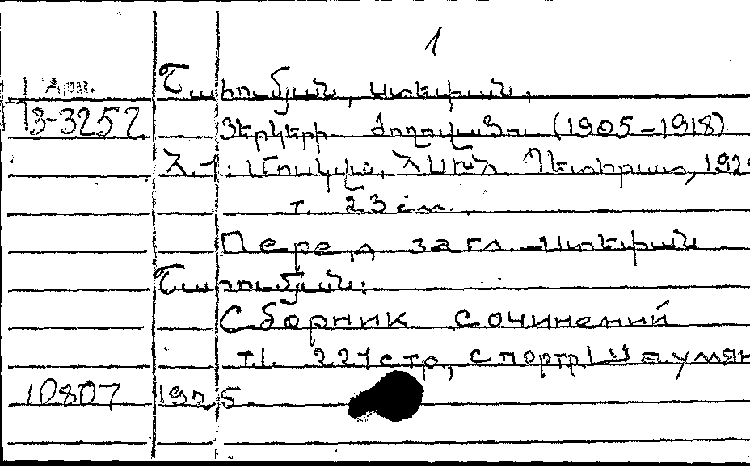 1
Арм. Շաhումյան, Ստեփան.
3-3252 Յերկերի ժողովածու (1905-1918)
Հ. 1: Մոսկվա, ՀՍԽՀ Պետhրատ, 192
т. 23 см.
Перед загл. Ստեփան
Շահումյան:
Сборник сочинений
т.1. 221 стр, с портр. Шаумян
10807 1925